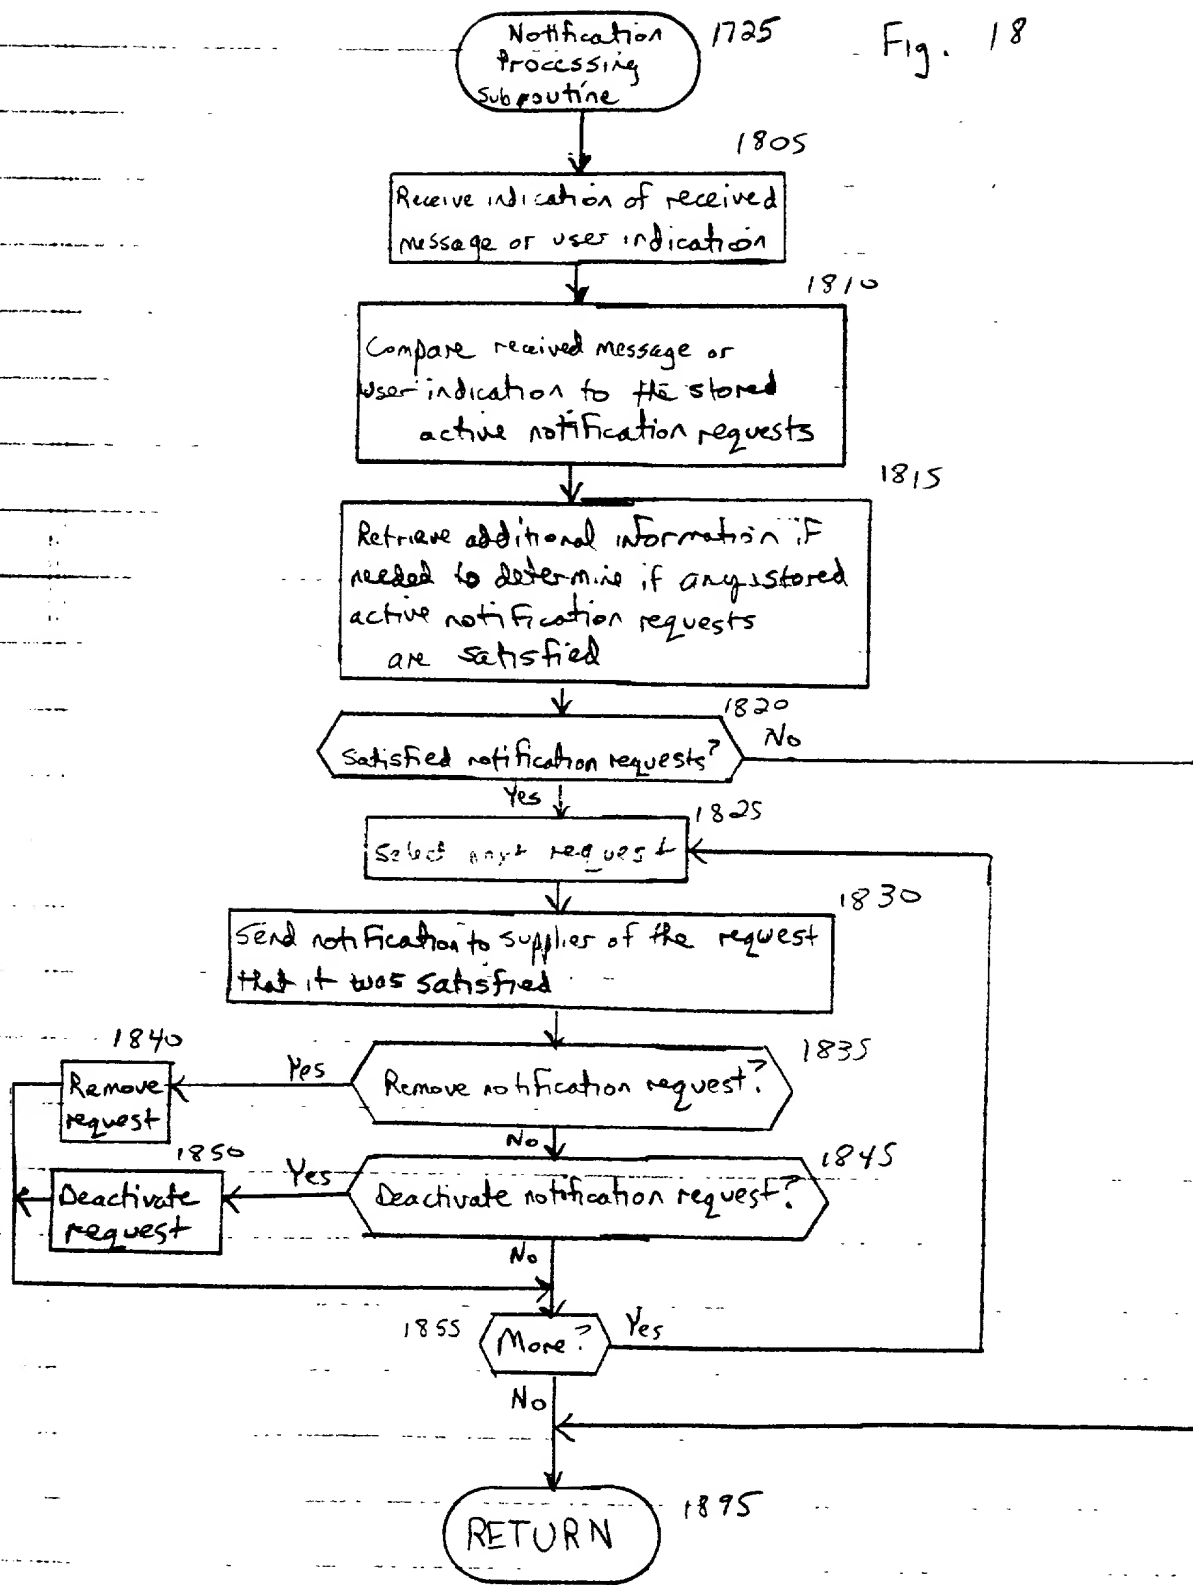 Fig. 18
Notification
Processing
Subroutine
1725
1805
Receive indication of received
message or user indication
1810
Compare received message or
user indication to the stored
active notification requests
1815
Retrieve additional information if
needed to determine if any stored
active notification requests
are satisfied
1820
Satisfied notification requests?
No
Yes
1825
Select next request
1830
Send notification to supplier of the request
that it was satisfied
1835
Remove notification request?
Yes
1840
Remove
request
No
1845
Deactivate notification request?
Yes
1850
Deactivate
request
No
1855
More?
Yes
No
RETURN
1895